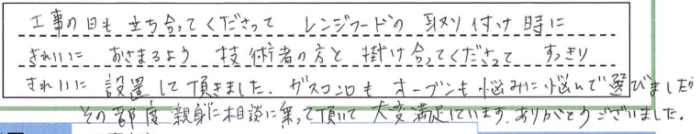 工事の日も立ち合ってくださって レンジフードの取り付け時に
きれいに おさまるよう 技術者の方と 掛け合ってくださって すっきり
きれいに 設置して頂きました。ガスコンロも オーブンも 悩みに悩んで選びましたが
その都度 親身に相談に乗って頂いて 大変満足しています。ありがとうございました。